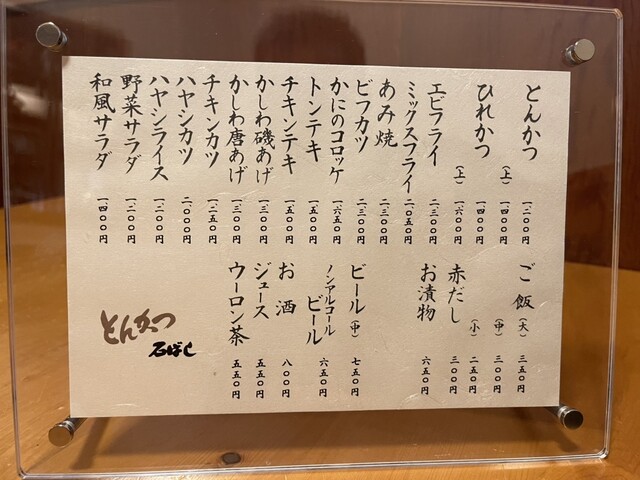 とんかつ 一、二〇〇円
（上） 一、四〇〇円
ひれかつ 一、四〇〇円
（上） 一、六〇〇円
エビフライ 二、三〇〇円
ミックスフライ 二、〇五〇円
あみ焼 二、三〇〇円
ビフカツ 二、三〇〇円
かにのコロッケ 一、六五〇円
トンテキ 一、五〇〇円
チキンテキ 一、五〇〇円
かしわ磯あげ 一、三〇〇円
かしわ唐あげ 一、三〇〇円
チキンカツ 一、二五〇円
ハヤシカツ 二、〇〇〇円
ハヤシライス 一、二〇〇円
野菜サラダ 一、二〇〇円
和風サラダ 一、四〇〇円
ご飯（大） 三五〇円
（中） 三〇〇円
（小） 二五〇円
赤だし 三〇〇円
お漬物 六五〇円
ビール（中） 七五〇円
ノンアルコールビール 六五〇円
お酒 八〇〇円
ジュース 五五〇円
ウーロン茶 五五〇円
とんかつ
石ばし